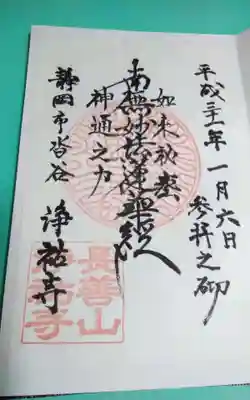 平成三十一年 一月六日
参拝之砌
如来秘密
南無妙法蓮華経
神通之力
静岡市沓谷
浄祐寺
長善山
浄祐寺